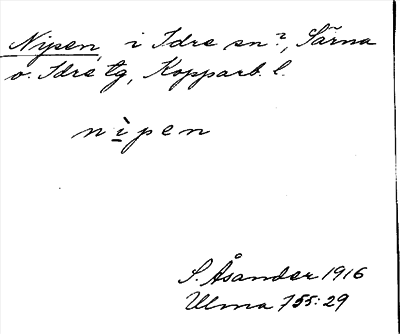 Nipen, i Idre sn?, Särna
o. Idre tg, Kopparb. l.
nipen
S. Åsander 1916
Ulma 755:29